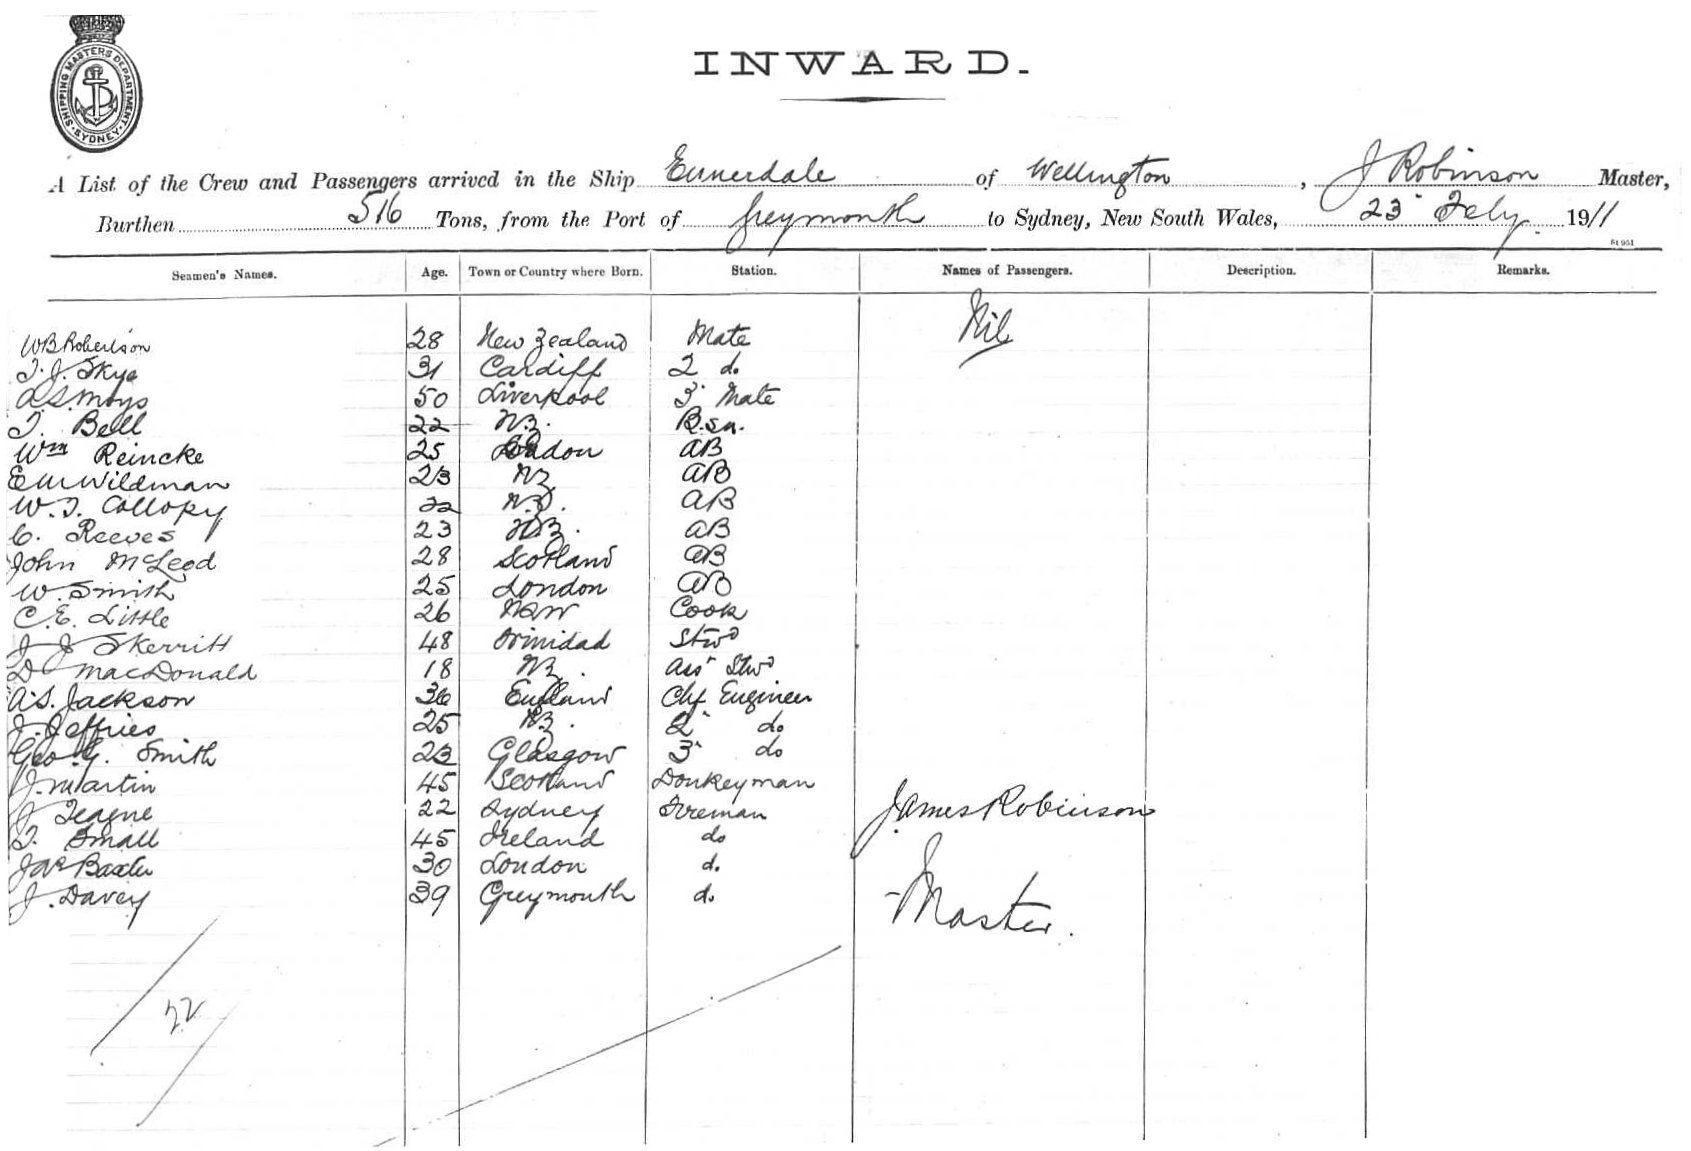 SHIPPING MASTERS DEPARTMENT SYDNEY
INWARD.
A List of the Crew and Passengers arrived in the Ship Ennerdale of Wellington, J Robinson Master,
Burthen 516 Tons, from the Port of Greymouth to Sydney, New South Wales, 23 July 1911
51 951
Seamen's Names. Age. Town or Country where Born. Station. Names of Passengers. Description. Remarks.
WB Robertson 28 New Zealand Mate Nil
T. J. Skye 31 Cardiff 2 do
50 Liverpool 3 Mate
T. Bell 22 NZ.
Wm Reincke 25 London AB
E W Wildman 23 NZ AB
W. T. Collopy 22 NZ. AB
C. Reeves 23 NZ. AB
John McLeod 28 Scotland AB
W. Smith 25 London AB
C. E. Little 26 NSW Cook
J J Skerritt 48 Trinidad Stwd
D MacDonald 18 NZ. Ass Stwd
A. S. Jackson 36 England Chf Engineer
J. Jeffries 25 NZ. 2 do
Geo. G. Smith 23 Glasgow 3 do
J. Martin 45 Scotland Donkeyman
J Teague 22 Sydney Fireman James Robinson
T. Small 45 Ireland do
Jas Baxter 30 London do
J. Davey 39 Greymouth do Master.
22